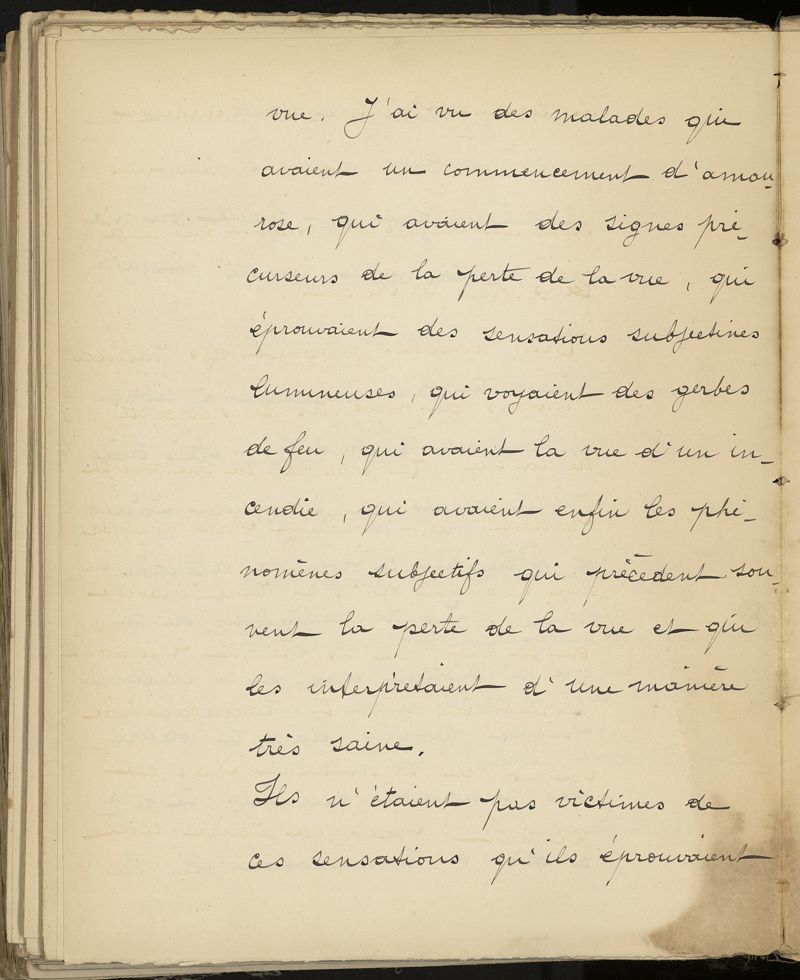 vue. J'ai vu des malades qui
avaient un commencement d'amau-
rose, qui avaient des signes pré-
curseurs de la perte de la vue, qui
éprouvaient des sensations subjectives
lumineuses, qui voyaient des gerbes
de feu, qui avaient la vue d'un in-
cendie, qui avaient enfin les phé-
nomènes subjectifs qui précèdent sou-
vent la perte de la vue et qui
les interprétaient d'une manière
très saine.
Ils n'étaient pas victimes de
ces sensations qu'ils éprouvaient